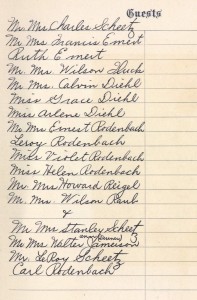 Guests
Mr. Mrs Charles Scheetz
Mr Mrs Francis Emert
Ruth Emert
Mr. Mrs. Wilson Fluck
Mr Mrs. Calvin Diehl
Miss Grace Diehl
Miss Arlene Diehl
Mr Mrs Ernest Rodenbach
Leroy Rodenbach
Miss Violet Rodenbach
Miss Helen Rodenbach
Mr. Mrs Howard Reigel
Mr. Mrs. Wilson Raub
&
Mr Mrs Stanley Scheetz
Mr Mrs Walter Jamerison
Mr LeRoy Scheetz
Carl Rodenbach